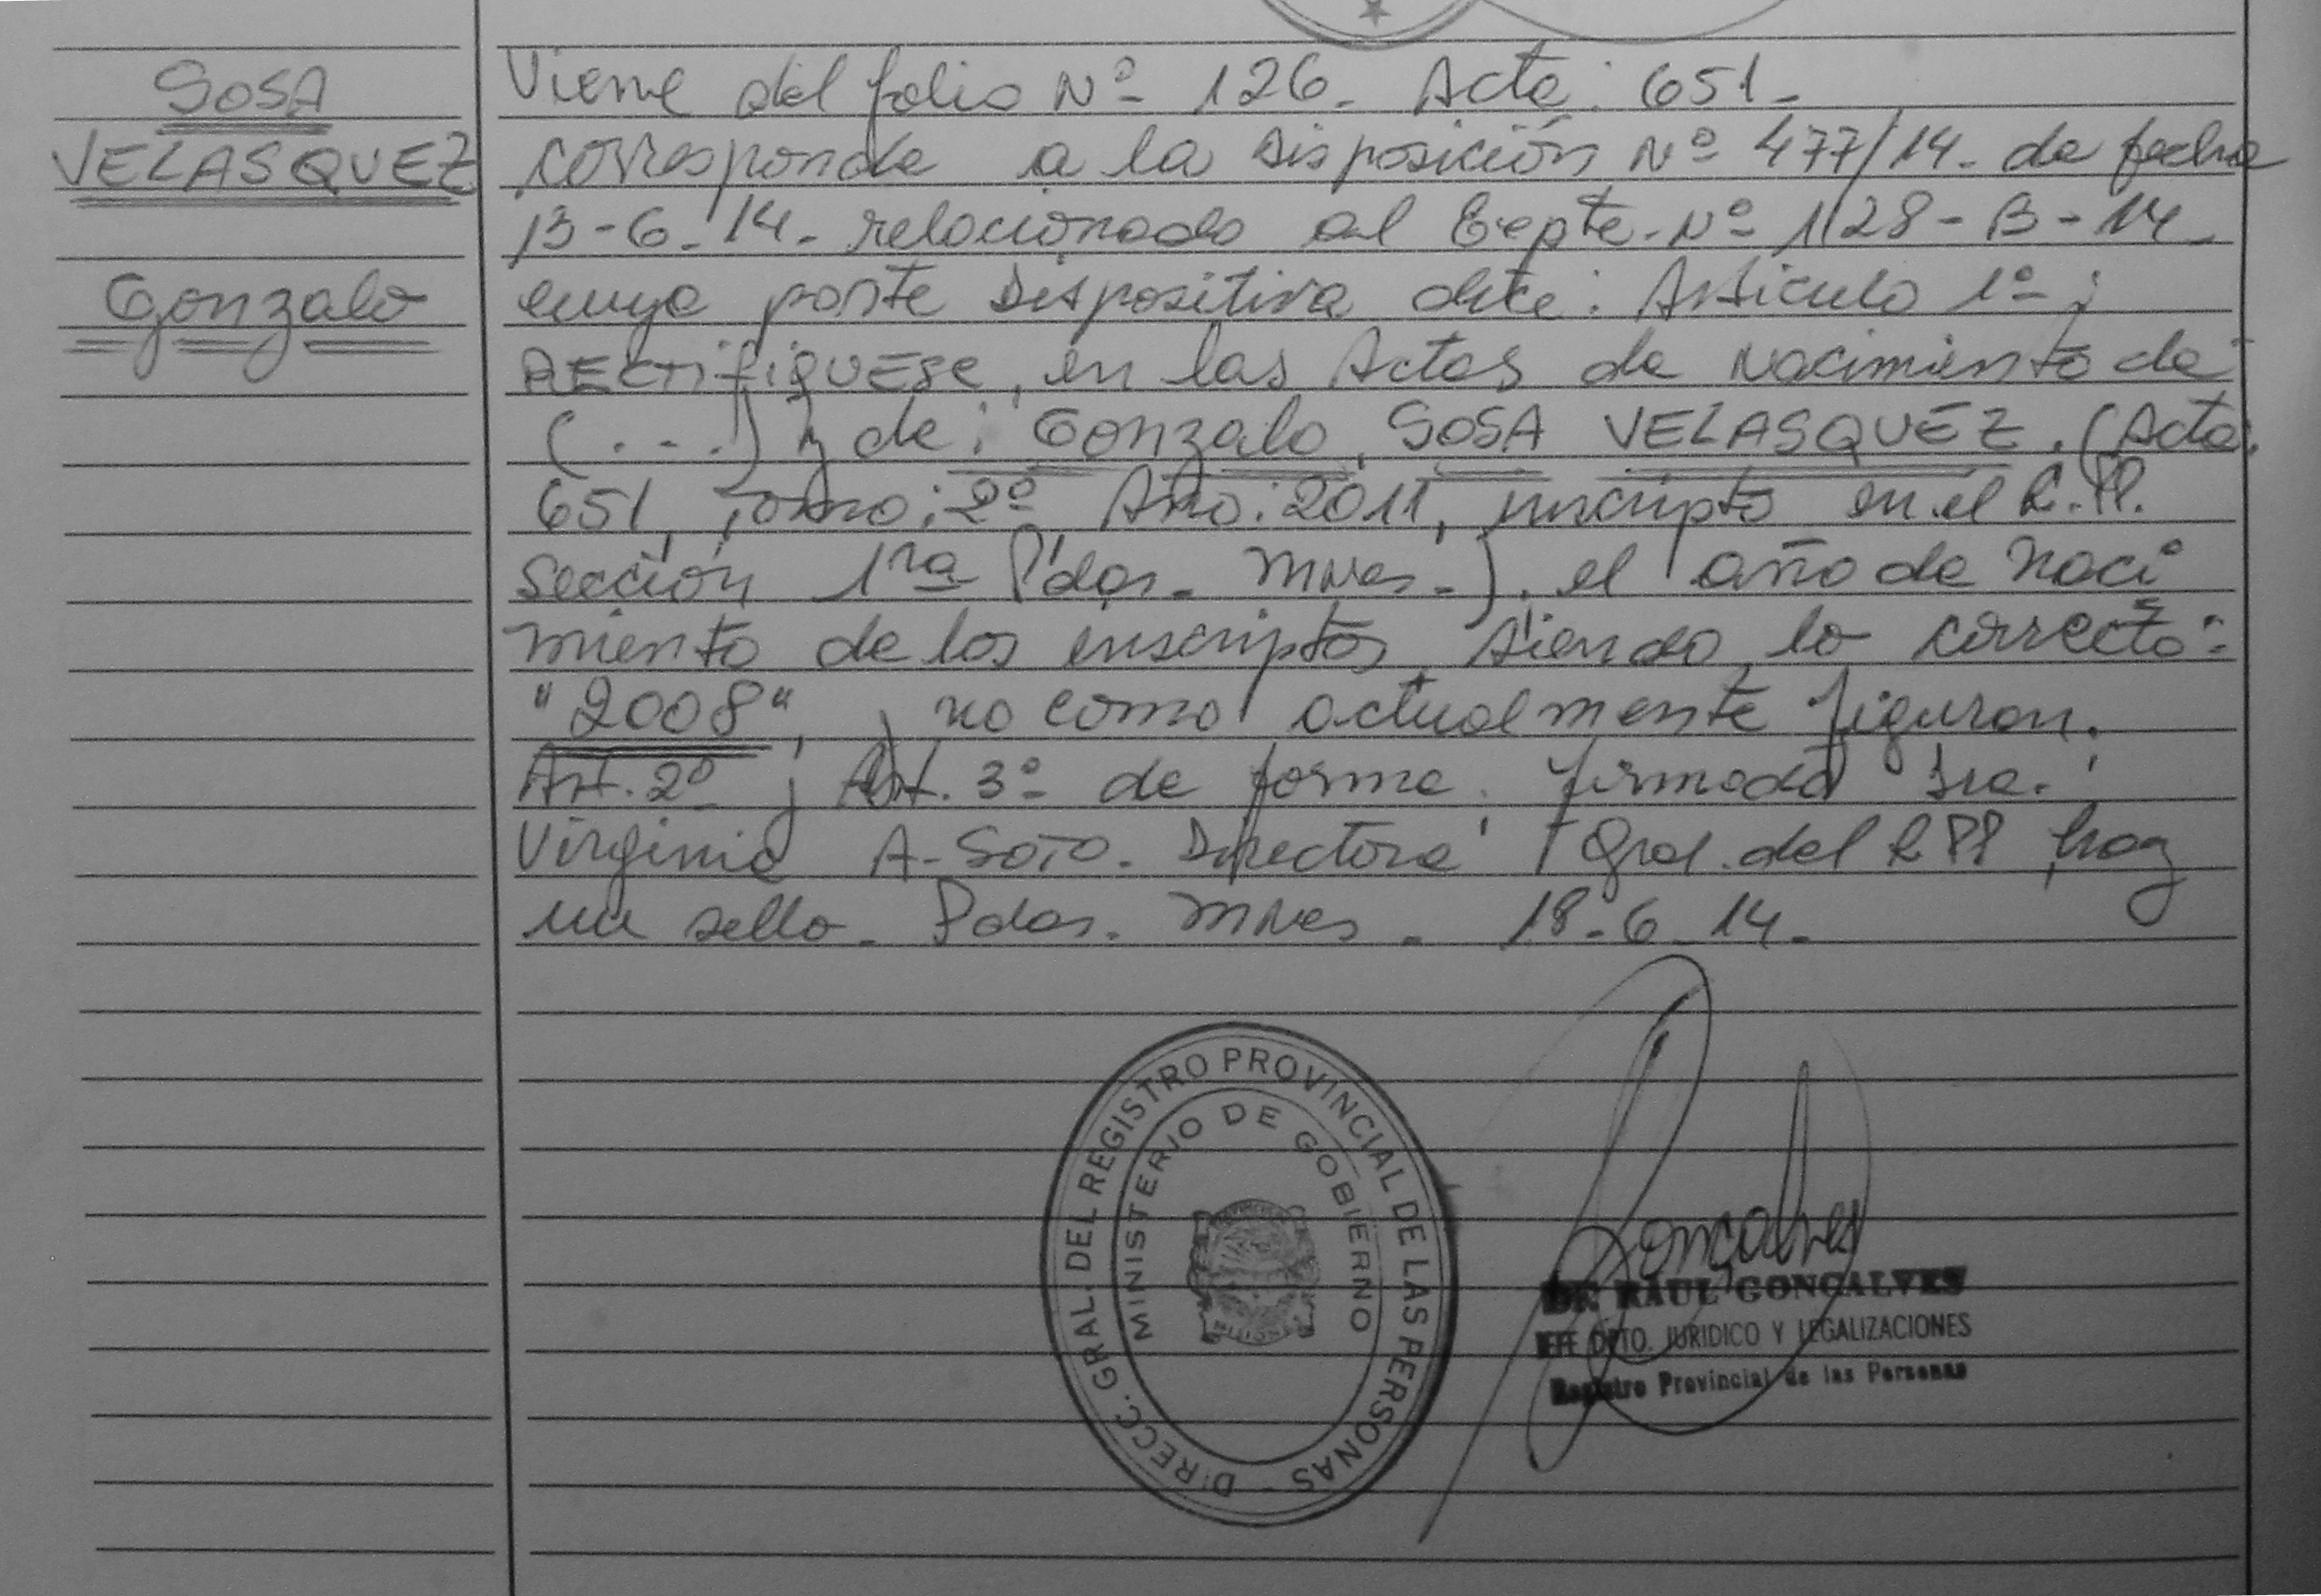 SOSA
VELASQUEZ
Gonzalo
Viene del folio Nº 126. Acta: 651.
corresponde a la Disposición Nº 477/14. de fecha
13-6-14. relacionado al Expte. Nº 1128-B-14.
cuya parte Dispositiva dice: Artículo 1º;
RECTIFIQUESE, en las Actas de Nacimiento de
(...) y de: Gonzalo, SOSA VELASQUEZ. (Acta:
651, Tomo: 2º Año: 2011, inscripto en el R.PP.
Sección 1ra Pdas. Mnes.). el año de naci
miento de los inscriptos, siendo lo correcto:
"2008", y no como actualmente figuran.
Art. 2º y Art. 3º de forma. firmada Sra.
Virginia A. Soto. Directora Gral. del RPP hay
un sello. Pdas. Mnes. 18-6-14.
DIRECC. GRAL. DEL REGISTRO PROVINCIAL DE LAS PERSONAS -
MINISTERIO DE GOBIERNO
MISIONES
Gonçalves
DR. RAUL GONÇALVES
JEFE DPTO. JURIDICO Y LEGALIZACIONES
Registro Provincial de las Personas